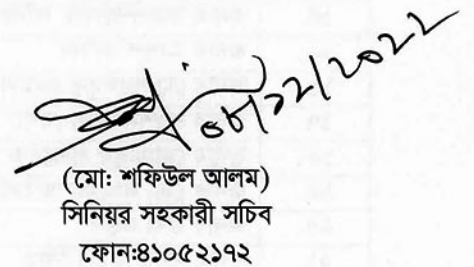 ০৮/১২/২০২২
(মো: শফিউল আলম)
সিনিয়র সহকারী সচিব
ফোন:৪১০৫২১৭২